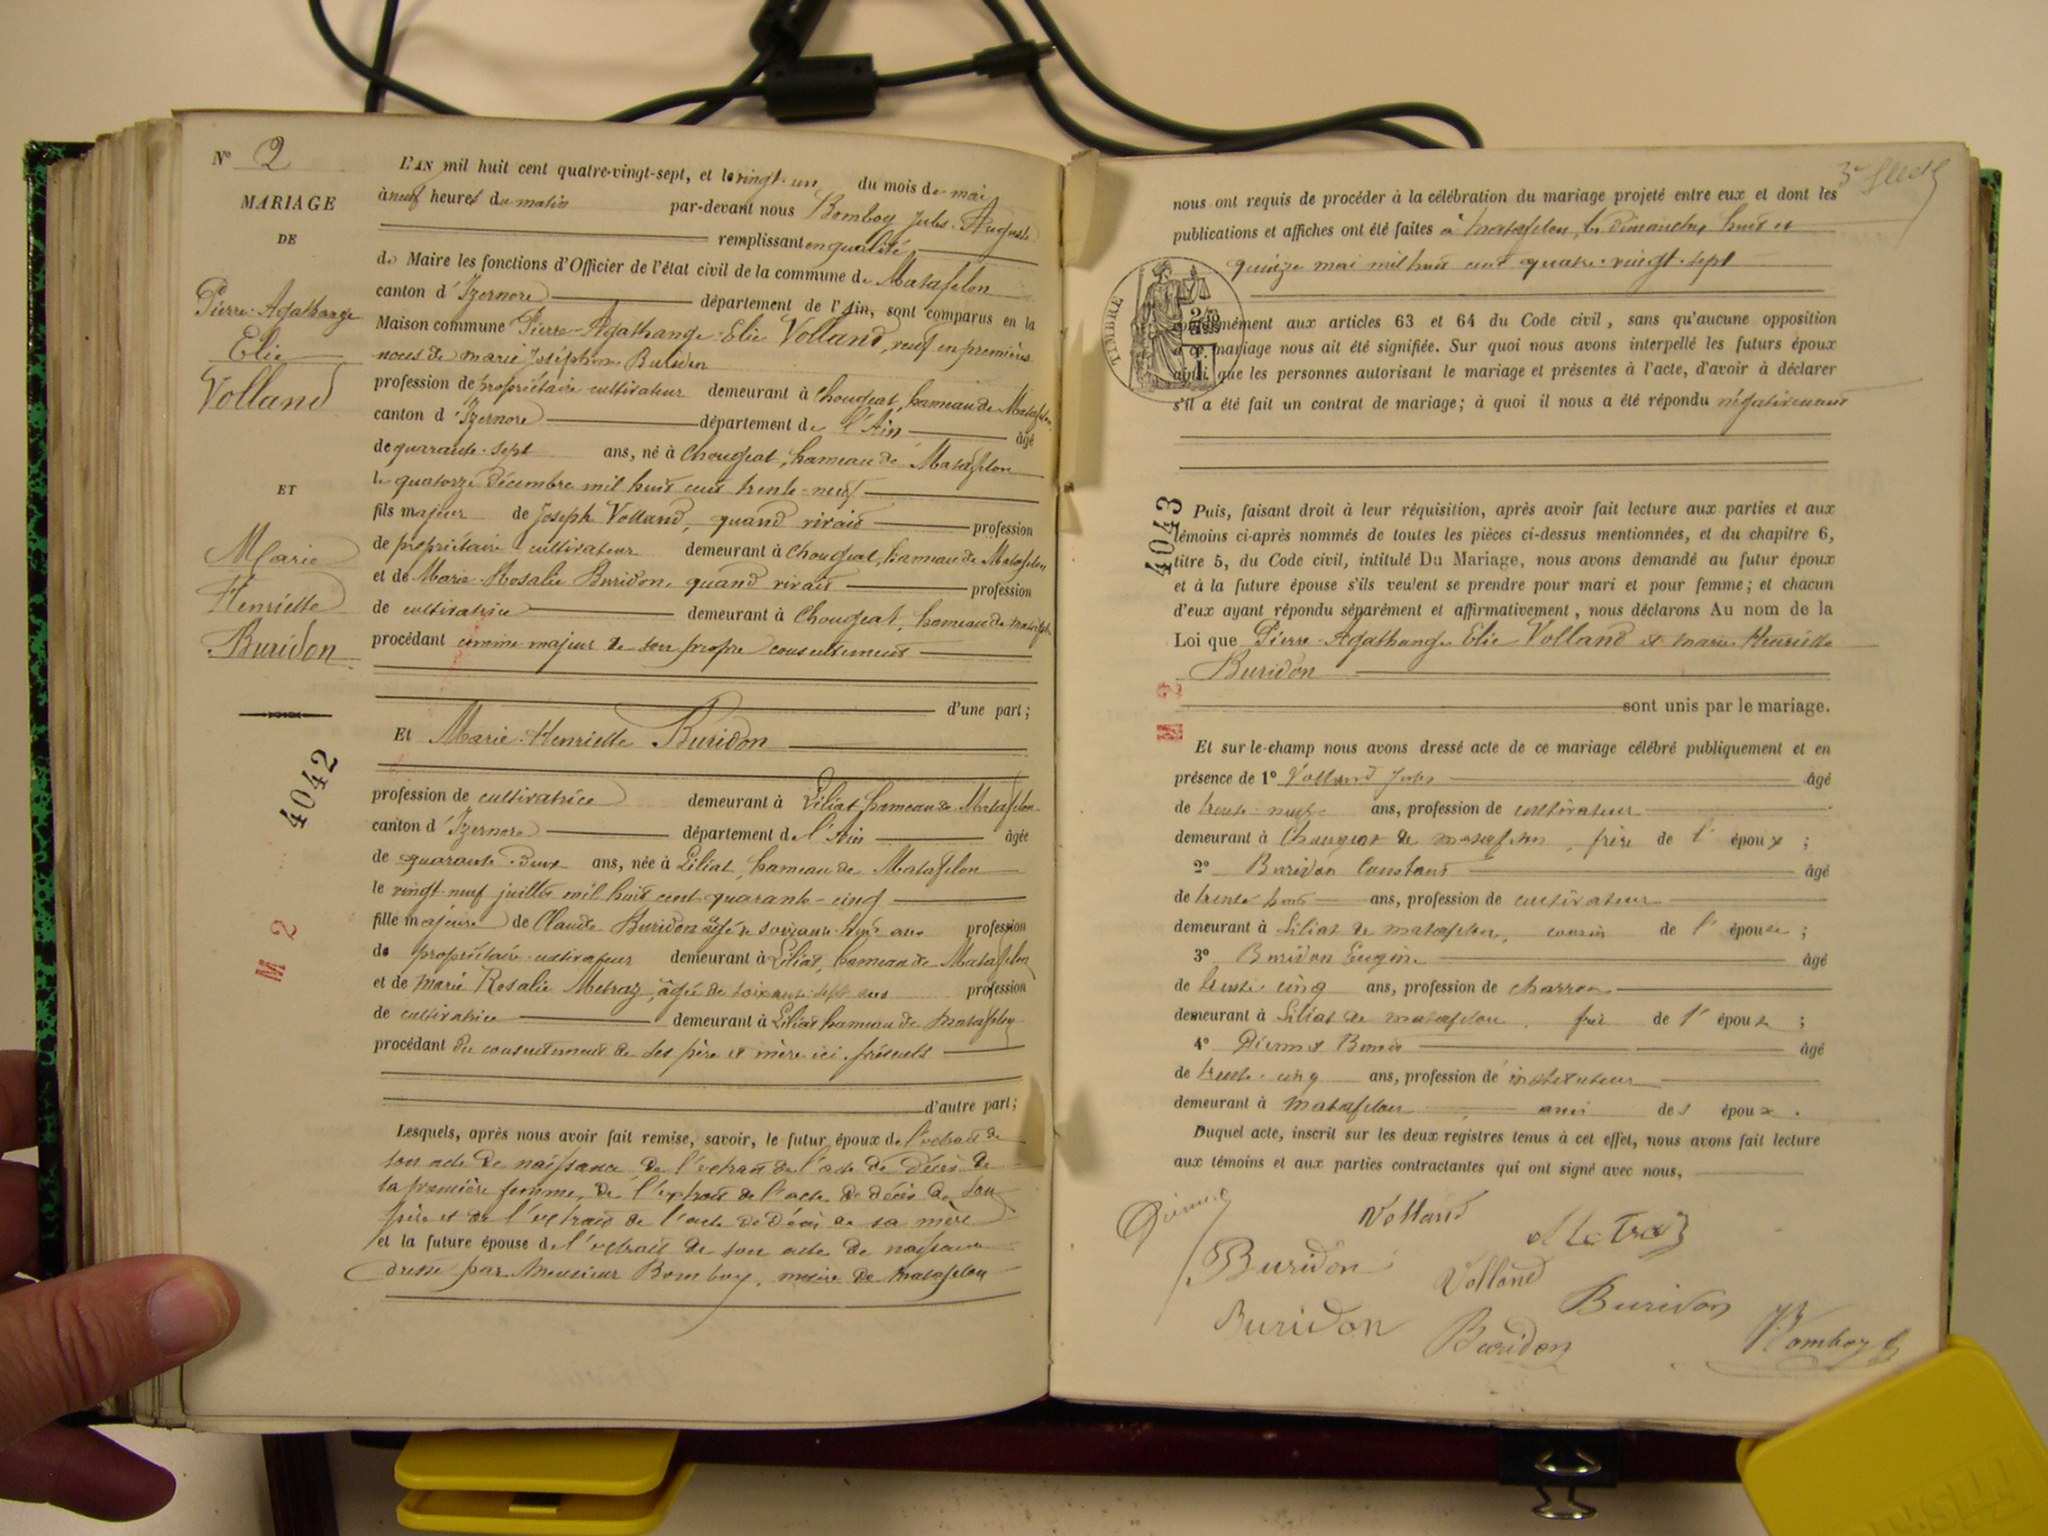 N° 2
MARIAGE
DE
Pierre-Agathange
Elie
Volland
ET
Marie
Henriette
Buridon
4042
M 2
L'AN mil huit cent quatre-vingt-sept, et le vingt-un du mois de mai
à neuf heures du matin par-devant nous Bomboy Jules-Auguste
remplissant en qualité
de Maire les fonctions d'Officier de l'état civil de la commune de Matafelon
canton d'Izernore département de l'Ain, sont comparus en la
Maison commune Pierre-Agathange-Elie Volland, veuf en premières
noces de marie Joséphine Buridon
profession de propriétaire cultivateur demeurant à Chougeat, hameau de Matafelon
canton d'Izernore département de l'Ain âgé
de quarante-sept ans, né à Chougeat, hameau de Matafelon
le quatorze Décembre mil huit cent trente-neuf
fils majeur de Joseph Volland, quand vivait profession
de propriétaire cultivateur demeurant à Chougeat, hameau de Matafelon
et de Marie-Rosalie Buridon, quand vivait profession
de cultivatrice demeurant à Chougeat, hameau de Matafelon
procédant comme majeur de son propre consentement
d'une part;
Et Marie-Henriette Buridon
profession de cultivatrice demeurant à Liliat, hameau de Matafelon
canton d'Izernore département de l'Ain âgée
de quarante-deux ans, née à Liliat, hameau de Matafelon
le vingt-neuf juillet mil huit cent quarante-cinq
fille majeure de Claude Buridon âgé de soixante ans profession
de propriétaire-cultivateur demeurant à Liliat, hameau de Matafelon
et de Marie Rosalie Metraz, âgée de soixante-sept ans profession
de cultivatrice demeurant à Liliat hameau de Matafelon
procédant du consentement de ses père et mère ici présents
d'autre part;
Lesquels, après nous avoir fait remise, savoir, le futur époux de l'extrait de
son acte de naissance de l'extrait de l'acte de Décès de
sa première femme, de l'extrait de l'acte de décès de son
père et de l'extrait de l'acte de Décès de sa mère
et la future épouse de l'extrait de son acte de naissance
dressé par Monsieur Bomboy, maire de Matafelon
3e
nous ont requis de procéder à la célébration du mariage projeté entre eux et dont les
publications et affiches ont été faites à Matafelon, les dimanches huit et
quinze mai mil huit cent quatre-vingt-sept
TIMBRE
conformément aux articles 63 et 64 du Code civil, sans qu'aucune opposition
à ce mariage nous ait été signifiée. Sur quoi nous avons interpellé les futurs époux
ainsi que les personnes autorisant le mariage et présentes à l'acte, d'avoir à déclarer
s'il a été fait un contrat de mariage; à quoi il nous a été répondu négativement
4043
Puis, faisant droit à leur réquisition, après avoir fait lecture aux parties et aux
témoins ci-après nommés de toutes les pièces ci-dessus mentionnées, et du chapitre 6,
titre 5, du Code civil, intitulé Du Mariage, nous avons demandé au futur époux
et à la future épouse s'ils veulent se prendre pour mari et pour femme; et chacun
d'eux ayant répondu séparément et affirmativement, nous déclarons Au nom de la
Loi que Pierre-Agathange Elie Volland et marie Henriette
Buridon
M 2
sont unis par le mariage.
Et sur-le-champ nous avons dressé acte de ce mariage célébré publiquement et en
présence de 1° Volland Jules âgé
de trente-neuf ans, profession de cultivateur
demeurant à Chougeat de matafelon, frère de l'époux;
2° Buridon Constant âgé
de trente ans, profession de cultivateur
demeurant à Liliat de matafelon, cousin de l'épouse;
3° Buridon Eugène âgé
de trente-cinq ans, profession de charron
demeurant à Liliat de matafelon, frère de l'épouse;
4° âgé
de trente-cinq ans, profession de instituteur
demeurant à Matafelon ami des époux.
Duquel acte, inscrit sur les deux registres tenus à cet effet, nous avons fait lecture
aux témoins et aux parties contractantes qui ont signé avec nous,
Volland Metraz
Buridon Volland Buridon
Buridon Buridon Bomboy